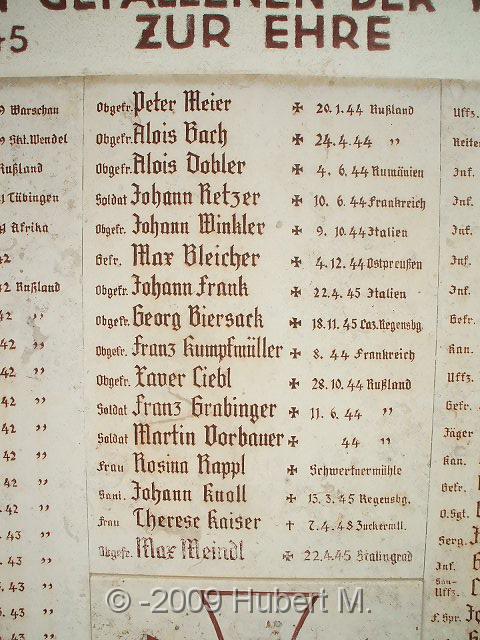 GEFALLENEN DER
45 ZUR EHRE
Warschau Obgefr. Peter Meier ✠ 20.1.44 Rußland Uffz.
Skt. Wendel Obgefr. Alois Bach ✠ 24.4.44 " Reiter
Rußland Obgefr. Alois Dobler ✠ 4.6.44 Rumänien Inf.
Tübingen Soldat Johann Retzer ✠ 10.6.44 Frankreich Inf.
Afrika Obgefr. Johann Winkler ✠ 9.10.44 Italien Inf.
42 Gefr. Max Bleicher ✠ 4.12.44 Ostpreußen Inf.
42 Rußland Obgefr. Johann Frank ✠ 22.4.45 Italien Inf.
42 " Obgefr. Georg Biersack ✠ 18.11.45 Laz. Regensbg. Gefr.
42 " Obgefr. Franz Kumpfmüller ✠ 8.44 Frankreich Kan.
42 " Obgefr. Xaver Liebl ✠ 28.10.44 Rußland Uffz.
42 " Soldat Franz Grabinger ✠ 11.6.44 " Gefr.
42 " Soldat Martin Vorbauer ✠ 44 " Jäger
42 " Frau Rosina Rappl ✠ Schwertnermühle Kan.
42 " Sani. Johann Knoll ✠ 13.3.45 Regensbg. Gefr.
42 " Frau Therese Kaiser † 7.4.48 Zuckermll. O.Sgt.
43 " Obgefr. Max Meindl ✠ 22.4.45 Stalingrad Serg.
43 " Inf.
43 " San-Uffz.
43 " F. Spr.
© -2009 Hubert M.